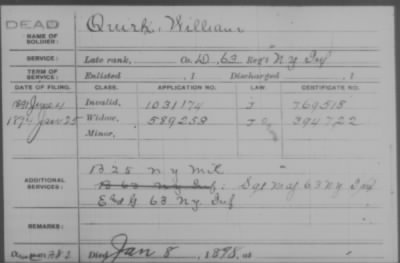 DEAD
NAME OF SOLDIER: Quirk, William
SERVICE: Late rank, Co. D, 63 Reg't N.Y. Inf
TERM OF SERVICE: Enlisted , 1 Discharged , 1
DATE OF FILING. CLASS. APPLICATION NO. LAW. CERTIFICATE NO.
1891 June 4 Invalid, 1031174 J 769518
Jan 25 Widow, 589259 394722
Minor,
ADDITIONAL SERVICES: B 25 N.Y. Mil
B 63 N.Y. Inf. Sgt Maj 63 N.Y. Inf
G 63 N.Y. Inf
REMARKS:
Died Jan 8, 1898, at